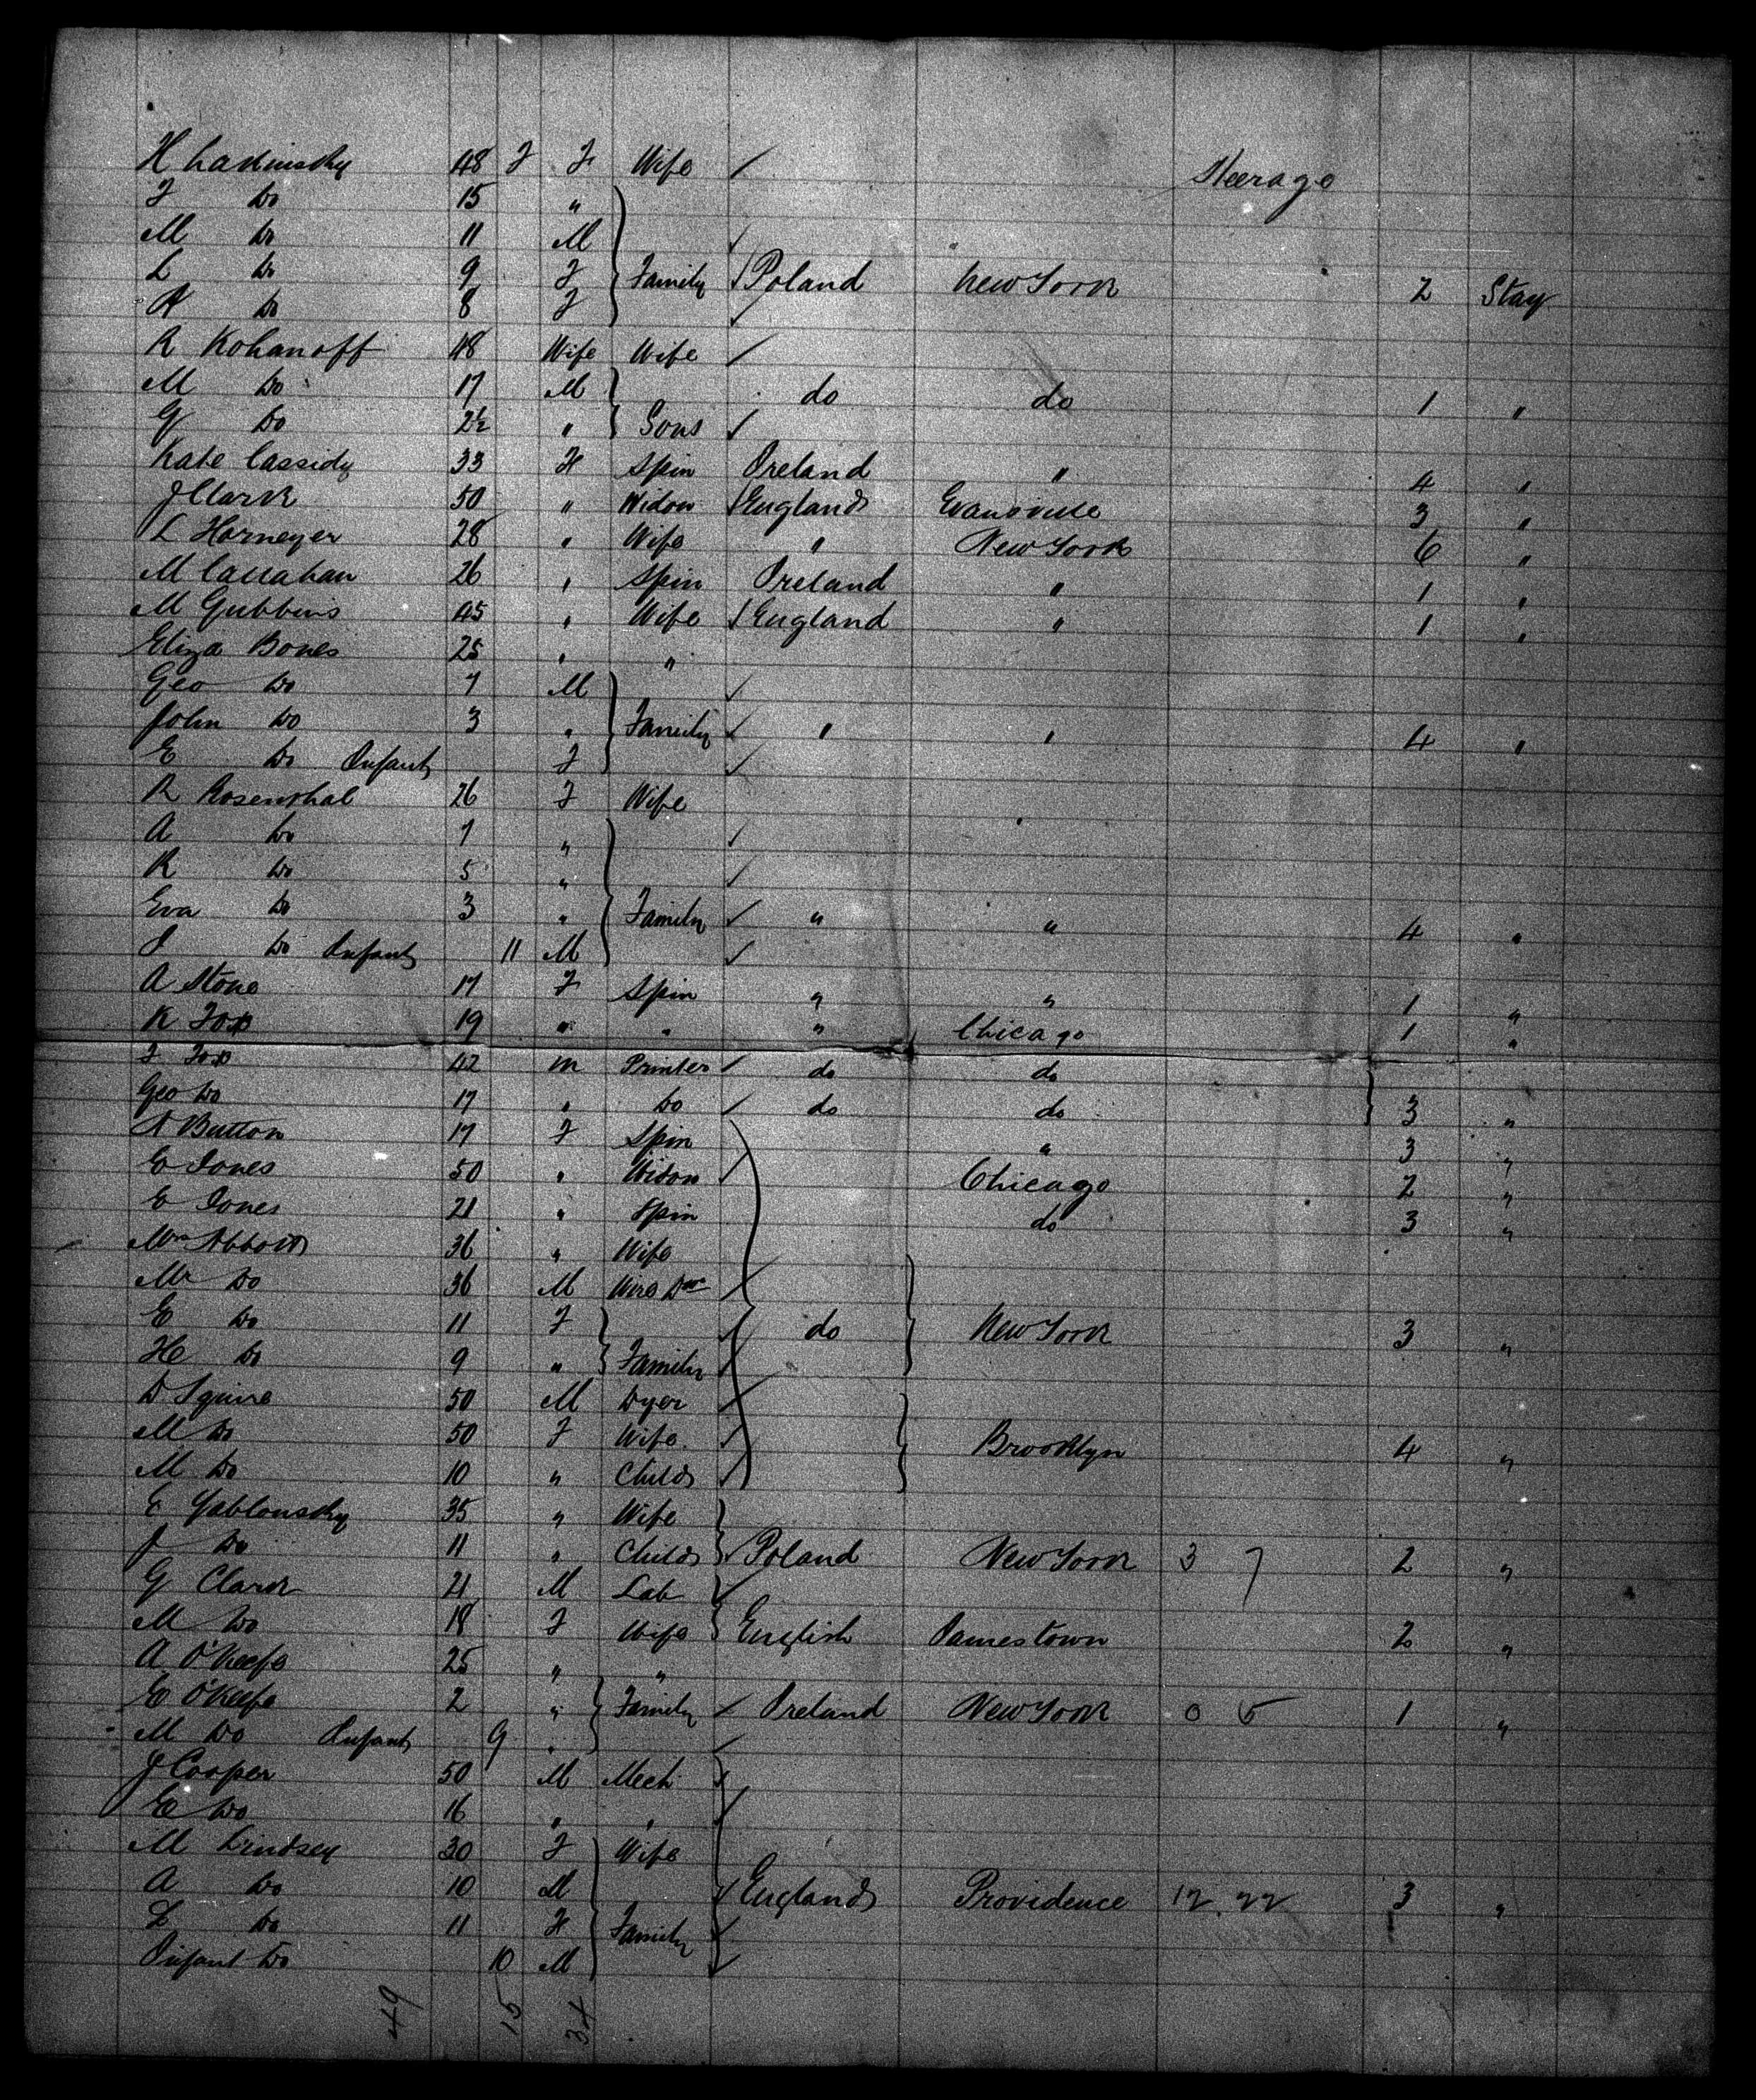 H Ladinsky 48 F F Wife Steerage
F Do 15 "
M Do 11 M
L Do 9 F Family Poland New York 2 Stay
A Do 8 F
R Kohanoff 48 Wife Wife
M Do 17 M do do 1 "
G Do 2½ " Sons
Kate Cassidy 33 F Spin Ireland " 4 "
J Clark 50 " Widow England Evansville 3 "
L Horneyer 28 " Wife " New York 6 "
M Callahan 26 " Spin Ireland " 1 "
M Gubbins 45 " Wife England " 1 "
Eliza Bones 25 " "
Geo Do 7 M
John Do 3 " Family " " 4 "
E Do Infant F
R Rosenthal 26 F Wife
A Do 7 "
R Do 5 "
Eva Do 3 " Family " " 4 "
I Do Infant 11 M
A Stone 17 F Spin " " 1 "
K Fox 19 " " " Chicago 1 "
F Fox 42 M Printer do do
Geo Do 17 " Do do do 3 "
A Button 17 F Spin " 3 "
E Jones 50 " Widow Chicago 2 "
E Jones 21 " Spin do 3 "
Mrs Abbott 36 " Wife
Mr Do 36 M Wire
E Do 11 F do New York 3 "
He Do 9 " Family
D Squire 50 M Dyer
M Do 50 F Wife Brooklyn 4 "
M Do 10 " Child
E Yablonsky 35 " Wife
J Do 11 " Child Poland New York 3 7 2 "
G Clark 21 M Lab
M Do 18 F Wife English Jamestown 2 "
A O'Keefe 25 " "
E O'Keefe 2 " Family Ireland New York 0 5 1 "
M Do Infant 9 "
J Cooper 50 M Mech
E Do 16 " "
M Lindsey 30 F Wife
A Do 10 M England Providence 12 22 3 "
L Do 11 F Family
Infant Do 10 M
49 15 34